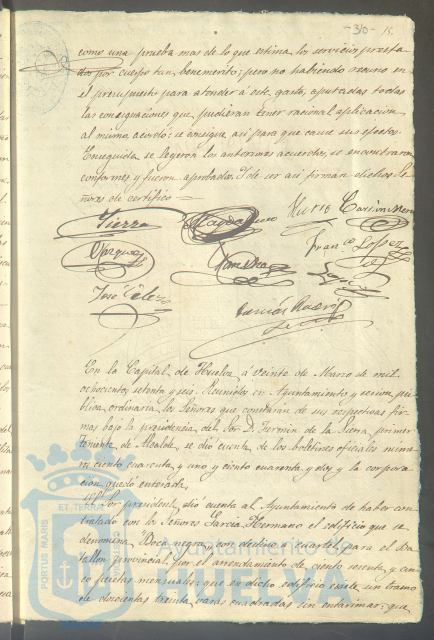 -310- 15.
como una prueba mas de lo que estima los servicios presta
dos por cuerpo tan benemerito; pero no habiendo recurso en
el presupuesto para atender á este gasto, apuradas todas
las consignaciones que pudieran tener racional aplicacion
al mismo, acordó se consigne asi para que cause sus efectos.
Enseguida se leyeron los anteriores acuerdos, se encontraron
conformes y fueron aprobados. Y de ser asi firman dichos Se
ñores de certifico =
Tierra
Vazquez
Franco Lopez
José
En la Capital de Huelva á veinte de Marzo de mil
ochocientos setenta y seis. Reunidos en Ayuntamiento y sesion pú
blica ordinaria los Señores que constaran de sus respectivas fir
mas bajo la presidencia del Sor. D. Fermin de la Sierra primer
teniente de Alcalde, se dió cuenta de los boletines oficiales núme
ro ciento cuarenta y uno y ciento cuarenta y dos y la corpora
cion quedó enterada.
El Sor. president. dió cuenta al Ayuntamiento de haber con
tratado con los Señores Garcia Hermano el edificio que se
denomina Boca negra, con destino á cuartel para el Ba
tallon provincial, por el arrendamiento de ciento sesenta y cin
co pesetas mensuales: que en dicho edificio existe un tramo
de doscientas treinta varas cuadradas sin entarimar: que
PORTUS MARIS
ET TERRAE
CUSTODIA
Ayuntamiento de
HUELVA